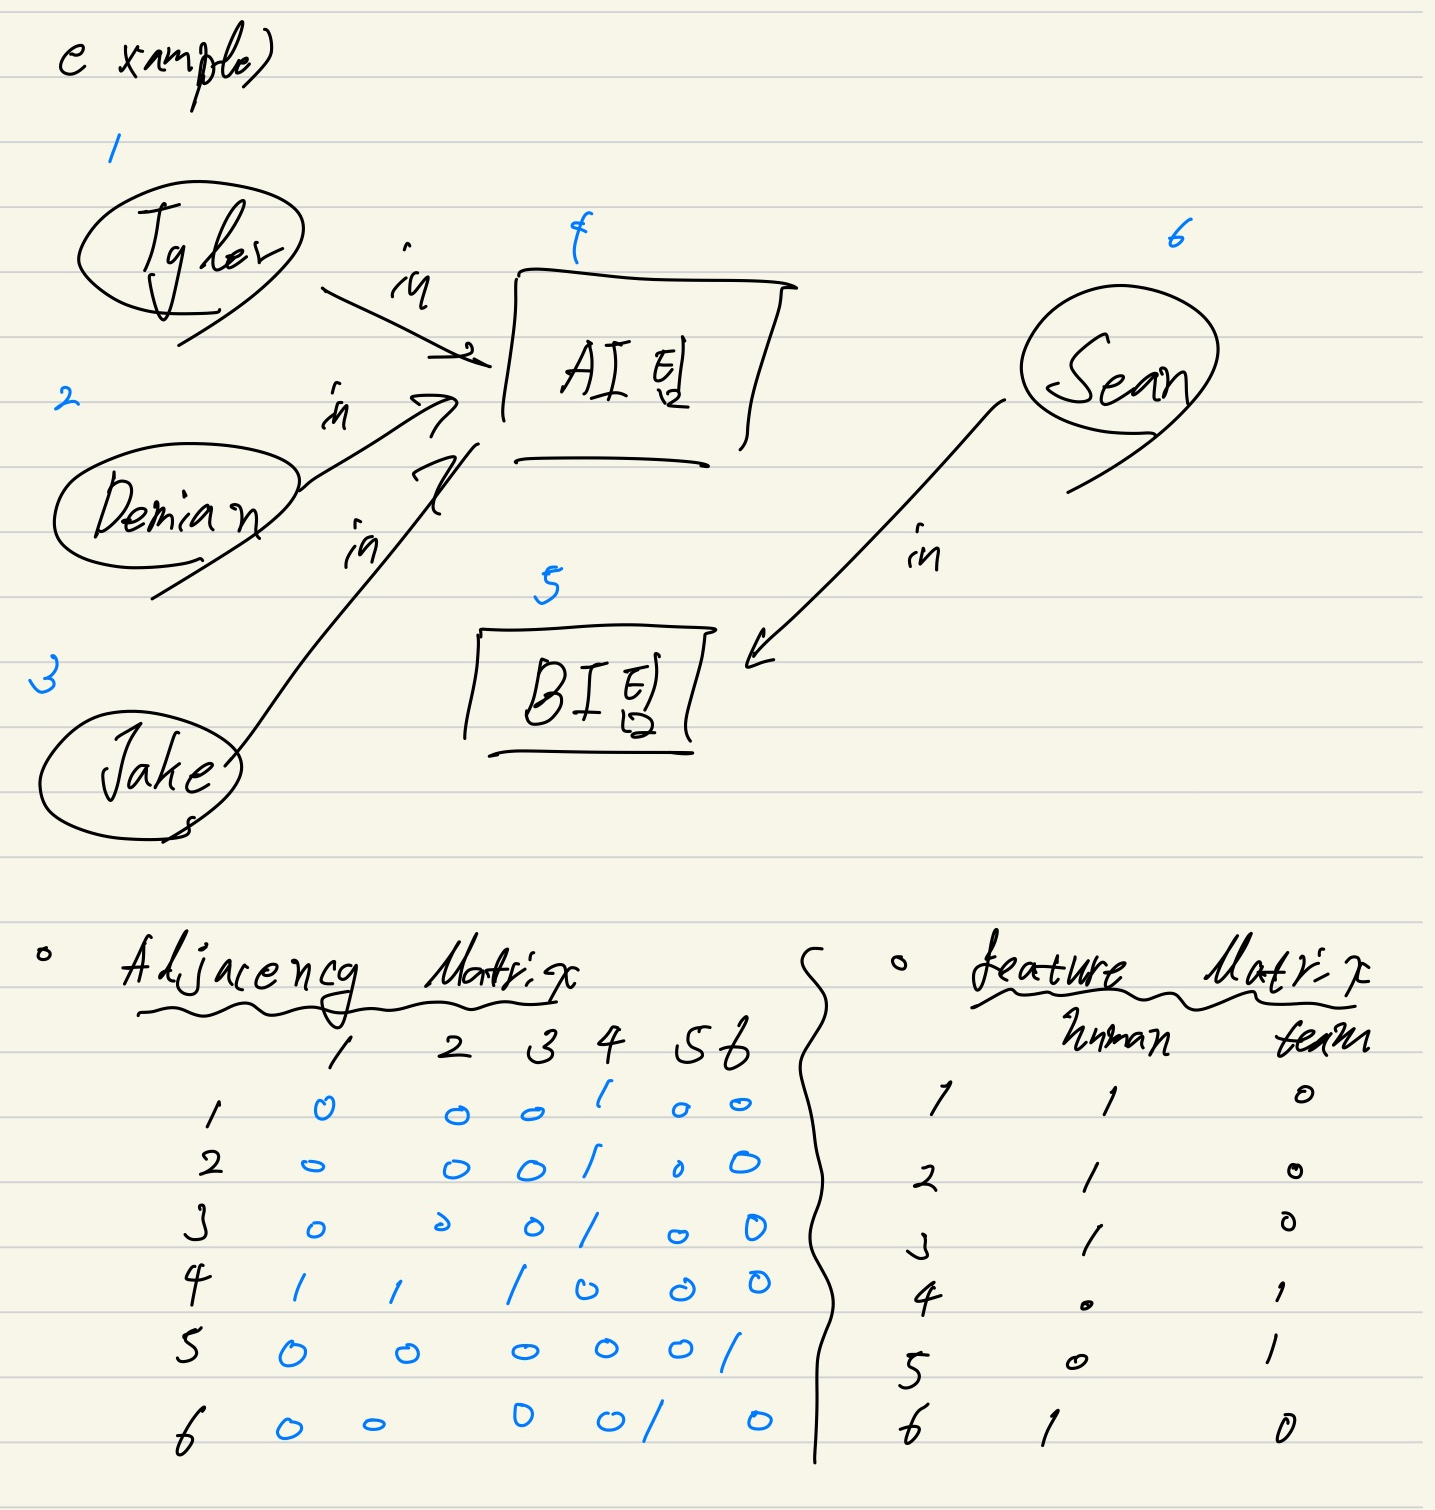 example)
1
Tyler
in
4
AI팀
6
Sean
2
in
Demian
in
in
5
BI팀
3
Jake
Adjacency Matrix
1 2 3 4 5 6
1 0 0 0 1 0 0
2 0 0 0 1 0 0
3 0 0 0 1 0 0
4 1 1 1 0 0 0
5 0 0 0 0 0 1
6 0 0 0 0 1 0
feature Matrix
human team
1 1 0
2 1 0
3 1 0
4 0 1
5 0 1
6 1 0